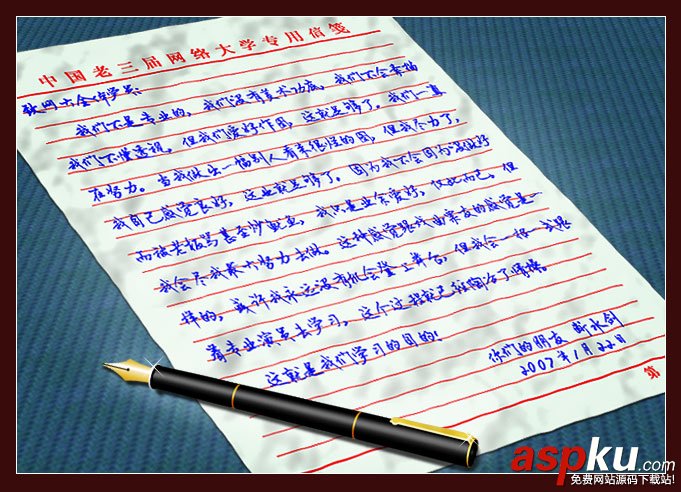 中国老三届网络大学专用信笺
致网大全体学员:
我们不是专业的,我们没有美术功底,我们不会素描
我们不懂透视。但我们爱好作图,这就足够了。我们一直
在努力。当我做出一幅别人看来很烂的图,但我尽力了,
我自己感觉良好,这也就足够了。因为我不会因为没做好
而被老板骂甚至炒鱿鱼,我只是业余爱好,仅此而已。但
我会尽我最大努力去做。这种感觉跟我曲宗友的感觉是一
样的,或许我永远没有机会登上舞台,但我会一招一式跟
着专业演员去学习,这个过程就已经陶冶了情操。
这就是我们学习的目的!
你们的朋友
2007年1月22日
第
aspku.com
免费网站源码下载站!